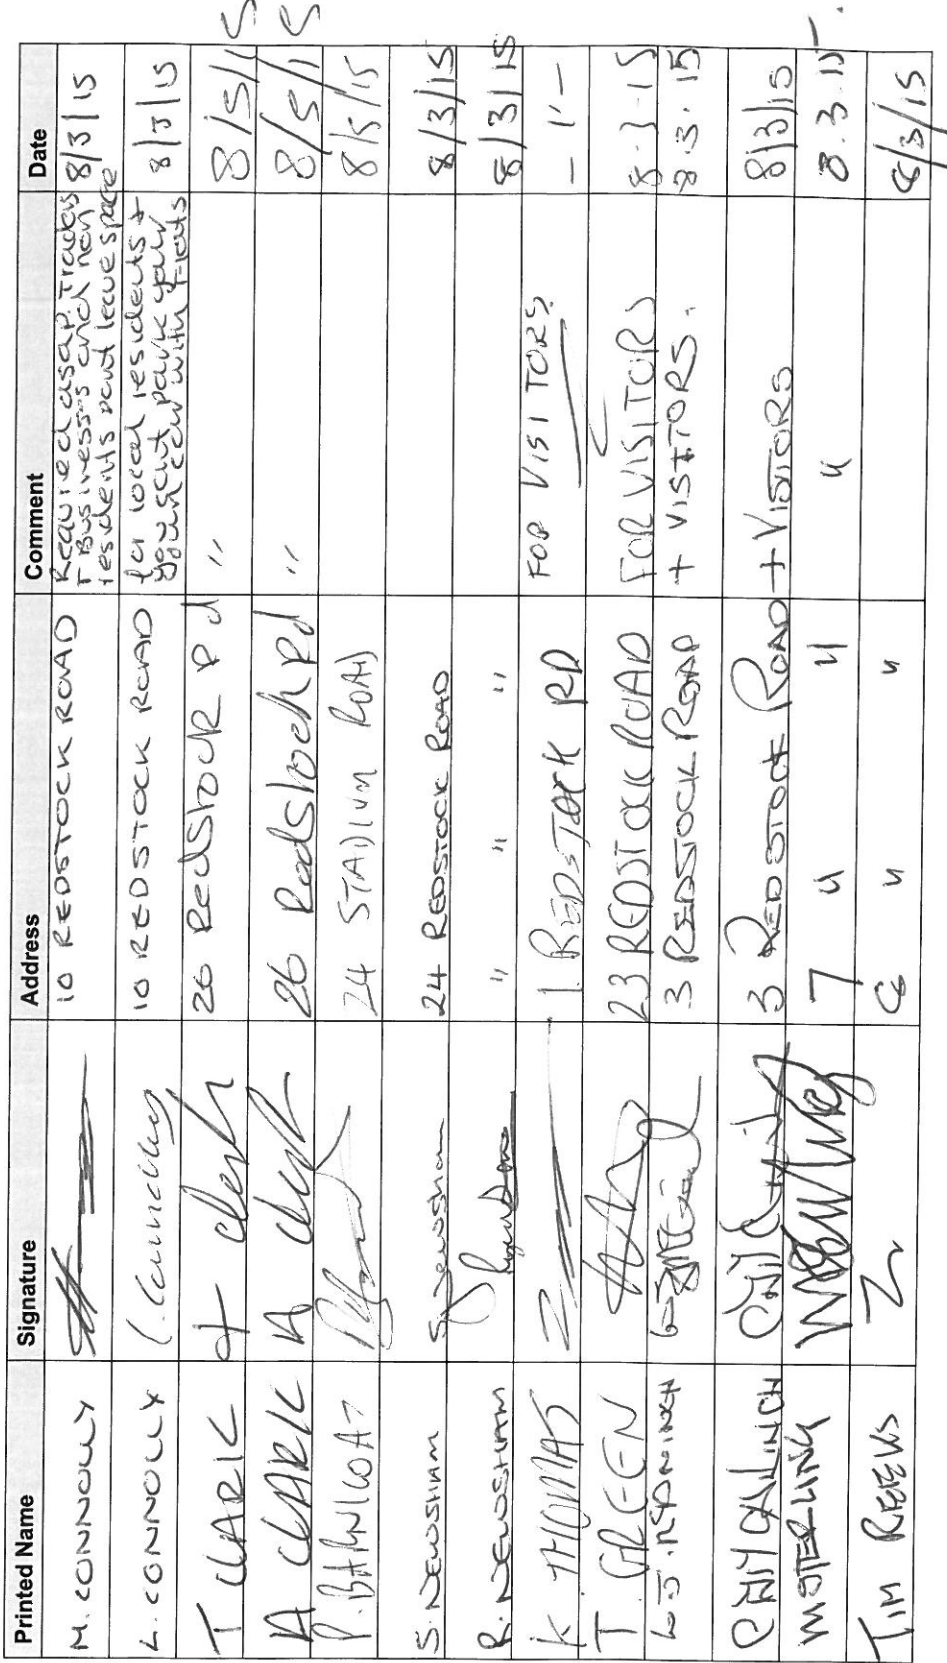 Printed Name Signature Address Comment Date
M. CONNOLLY 10 REDSTOCK ROAD Required asap. Trades 8/3/15
+ Businesses and non
residents dont leave space
L. CONNOLLY L. Connolly 10 REDSTOCK ROAD for local residents + 8/3/15
you cant park your
with Flats
T CLARK T Clark 26 Redstock Rd " 8/5/15
A CLARK A Clark 26 Redstock Rd " 8/5/15
P. 24 STADIUM ROAD 8/5/15
S. NEWSHAM S Newsham 24 REDSTOCK ROAD 8/3/15
R. NEWSHAM " " " 8/3/15
K. THOMAS 1. REDSTOCK RD FOR VISITORS. - " -
T. GREEN 23 REDSTOCK ROAD FOR VISITORS 8.3.15
3 REDSTOCK ROAD + VISITORS. 8.3.15
3 REDSTOCK ROAD + VISITORS 8/3/15
7 " " " 8.3.15
TIM REEKS 6 " " 8/3/15